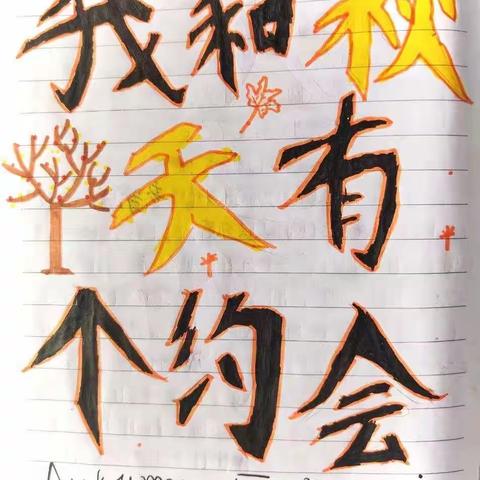 我和秋
天有
个约会